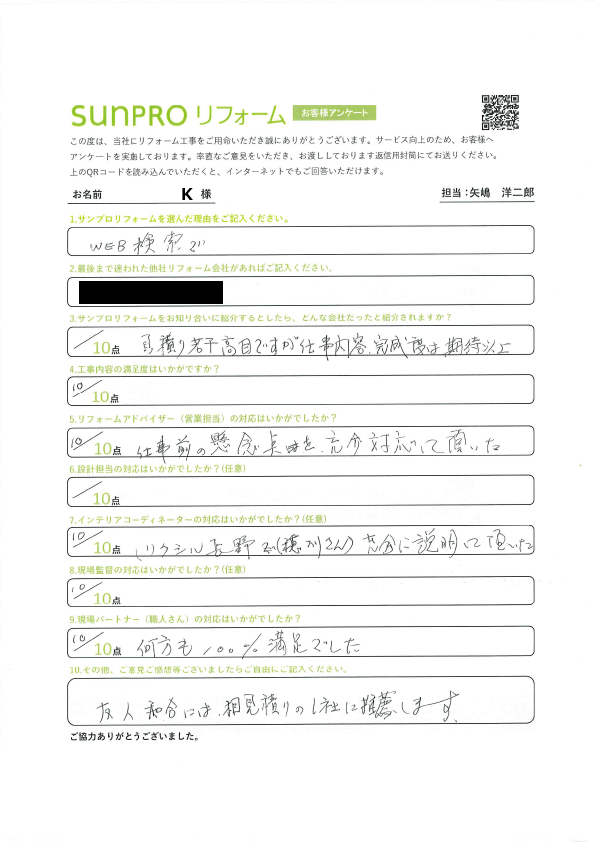 SUNPRO リフォーム お客様アンケート
この度は、当社にリフォーム工事をご用命いただき誠にありがとうございます。サービス向上のため、お客様へ
アンケートを実施しております。率直なご意見をいただき、お渡ししております返信用封筒にてお送りください。
上のQRコードを読み込んでいただくと、インターネットでもご回答いただけます。
お名前 K 様 担当：矢嶋 洋二郎
1.サンプロリフォームを選んだ理由をご記入ください。
WEB検索で
2.最後まで迷われた他社リフォーム会社があればご記入ください。
3.サンプロリフォームをお知り合いに紹介するとしたら、どんな会社だったと紹介されますか？
／10点 見積り若干高目ですが仕事内容、完成度は期待以上
4.工事内容の満足度はいかがですか？
10／10点
5.リフォームアドバイザー（営業担当）の対応はいかがでしたか？
10／10点 仕事前の懸念点 充分対応して頂いた
6.設計担当の対応はいかがでしたか？(任意)
／10点
7.インテリアコーディネーターの対応はいかがでしたか？(任意)
10／10点 リクシル長野で さん) 充分に説明して頂いた
8.現場監督の対応はいかがでしたか？(任意)
10／10点
9.現場パートナー（職人さん）の対応はいかがでしたか？
10／10点 何方も100%満足でした
10.その他、ご意見ご感想等ございましたらご自由にご記入ください。
友人 には、相見積りの1社に推薦します。
ご協力ありがとうございました。